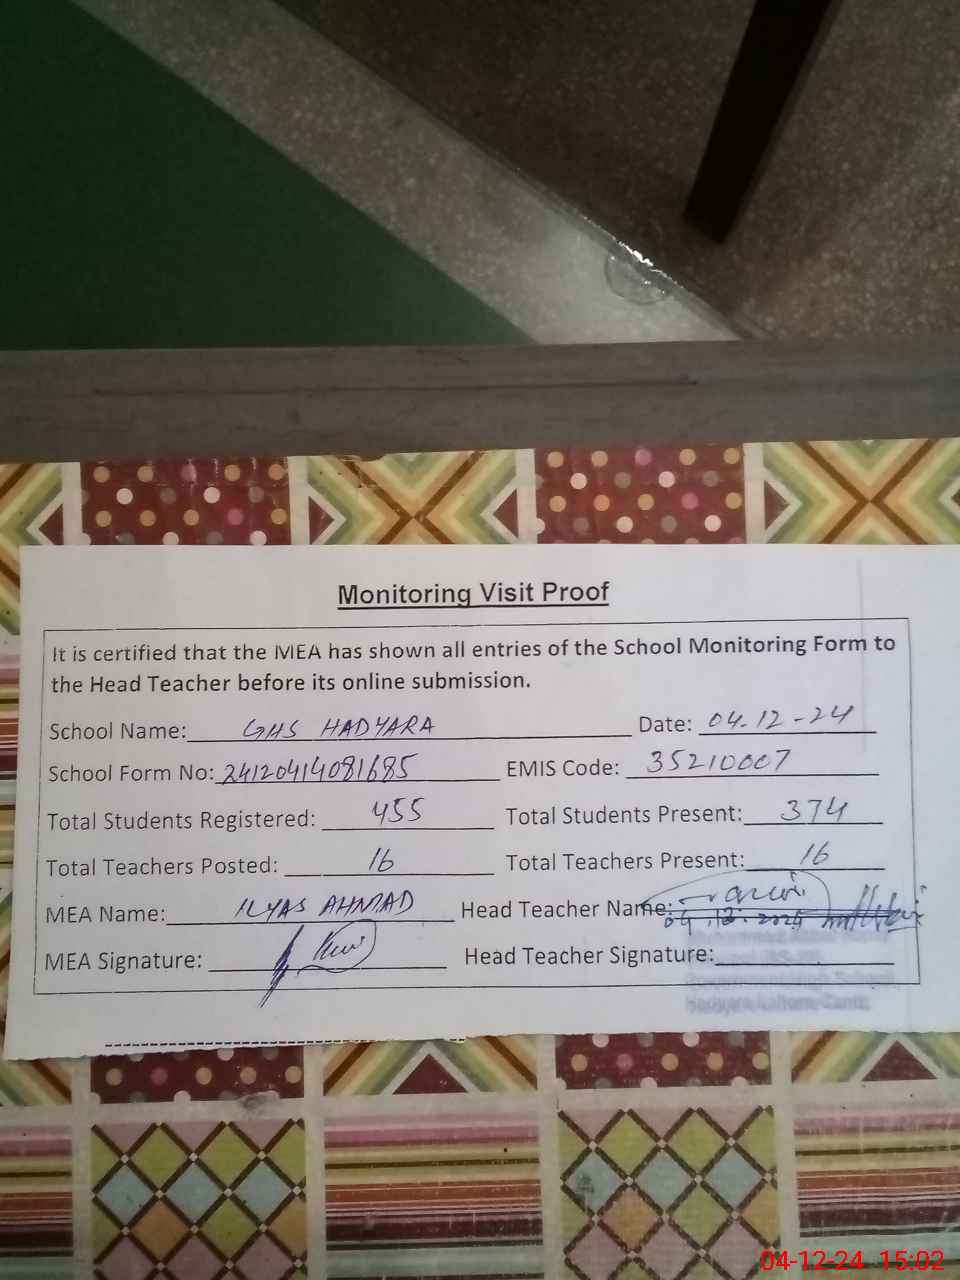 Monitoring Visit Proof
It is certified that the MEA has shown all entries of the School Monitoring Form to
the Head Teacher before its online submission.
School Name: GHS HADYARA Date: 04-12-24
School Form No: 24120414081685 EMIS Code: 35210007
Total Students Registered: 455 Total Students Present: 374
Total Teachers Posted: 16 Total Teachers Present: 16
MEA Name: ILYAS AHMAD Head Teacher Name:
04.12.2024
MEA Signature: Head Teacher Signature:
04-12-24 15:02